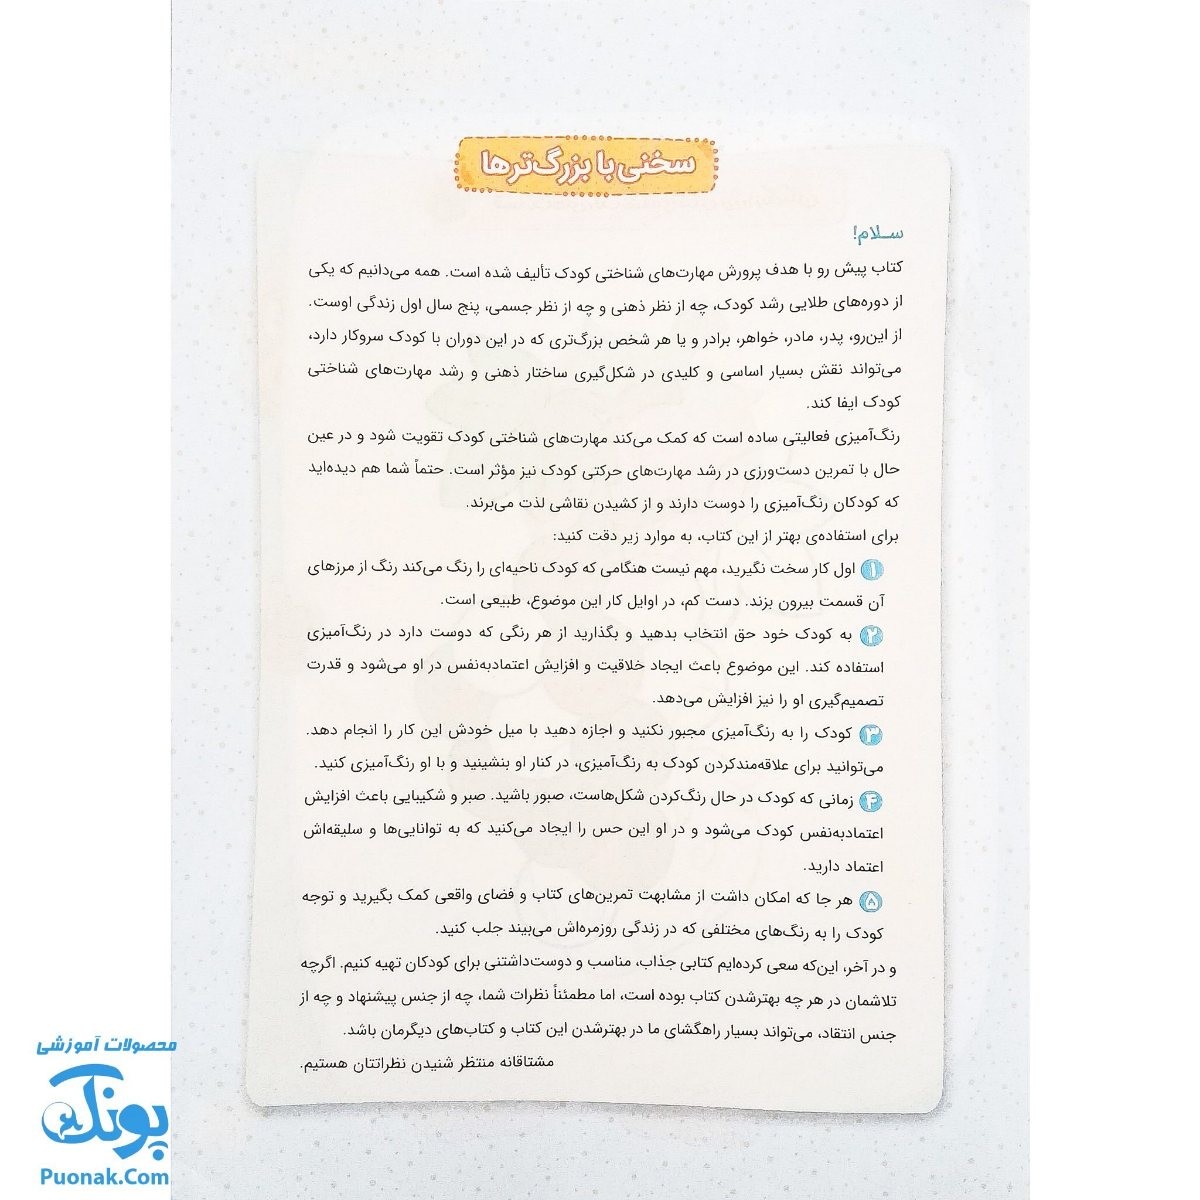 سخنی با بزرگ‌ترها
سلام!
کتاب پیش رو با هدف پرورش مهارت‌های شناختی کودک تألیف شده است. همه می‌دانیم که یکی
از دوره‌های طلایی رشد کودک، چه از نظر ذهنی و چه از نظر جسمی، پنج سال اول زندگی اوست.
از این‌رو، پدر، مادر، خواهر، برادر و یا هر شخص بزرگ‌تری که در این دوران با کودک سروکار دارد،
می‌تواند نقش بسیار اساسی و کلیدی در شکل‌گیری ساختار ذهنی و رشد مهارت‌های شناختی
کودک ایفا کند.
رنگ‌آمیزی فعالیتی ساده است که کمک می‌کند مهارت‌های شناختی کودک تقویت شود و در عین
حال با تمرین دست‌ورزی در رشد مهارت‌های حرکتی کودک نیز مؤثر است. حتماً شما هم دیده‌اید
که کودکان رنگ‌آمیزی را دوست دارند و از کشیدن نقاشی لذت می‌برند.
برای استفاده‌ی بهتر از این کتاب، به موارد زیر دقت کنید:
۱ اول کار سخت نگیرید، مهم نیست هنگامی که کودک ناحیه‌ای را رنگ می‌کند رنگ از مرزهای
آن قسمت بیرون بزند. دست کم، در اوایل کار این موضوع، طبیعی است.
۲ به کودک خود حق انتخاب بدهید و بگذارید از هر رنگی که دوست دارد در رنگ‌آمیزی
استفاده کند. این موضوع باعث ایجاد خلاقیت و افزایش اعتمادبه‌نفس در او می‌شود و قدرت
تصمیم‌گیری او را نیز افزایش می‌دهد.
۳ کودک را به رنگ‌آمیزی مجبور نکنید و اجازه دهید با میل خودش این کار را انجام دهد.
می‌توانید برای علاقه‌مندکردن کودک به رنگ‌آمیزی، در کنار او بنشینید و با او رنگ‌آمیزی کنید.
۴ زمانی که کودک در حال رنگ‌کردن شکل‌هاست، صبور باشید. صبر و شکیبایی باعث افزایش
اعتمادبه‌نفس کودک می‌شود و در او این حس را ایجاد می‌کنید که به توانایی‌ها و سلیقه‌اش
اعتماد دارید.
۵ هر جا که امکان داشت از مشابهت تمرین‌های کتاب و فضای واقعی کمک بگیرید و توجه
کودک را به رنگ‌های مختلفی که در زندگی روزمره‌اش می‌بیند جلب کنید.
و در آخر، این‌که سعی کرده‌ایم کتابی جذاب، مناسب و دوست‌داشتنی برای کودکان تهیه کنیم. اگرچه
تلاشمان در هر چه بهترشدن کتاب بوده است، اما مطمئناً نظرات شما، چه از جنس پیشنهاد و چه از
جنس انتقاد، می‌تواند بسیار راهگشای ما در بهترشدن این کتاب و کتاب‌های دیگرمان باشد.
مشتاقانه منتظر شنیدن نظراتتان هستیم.
محصولات آموزشی
پونک
Puonak.Com